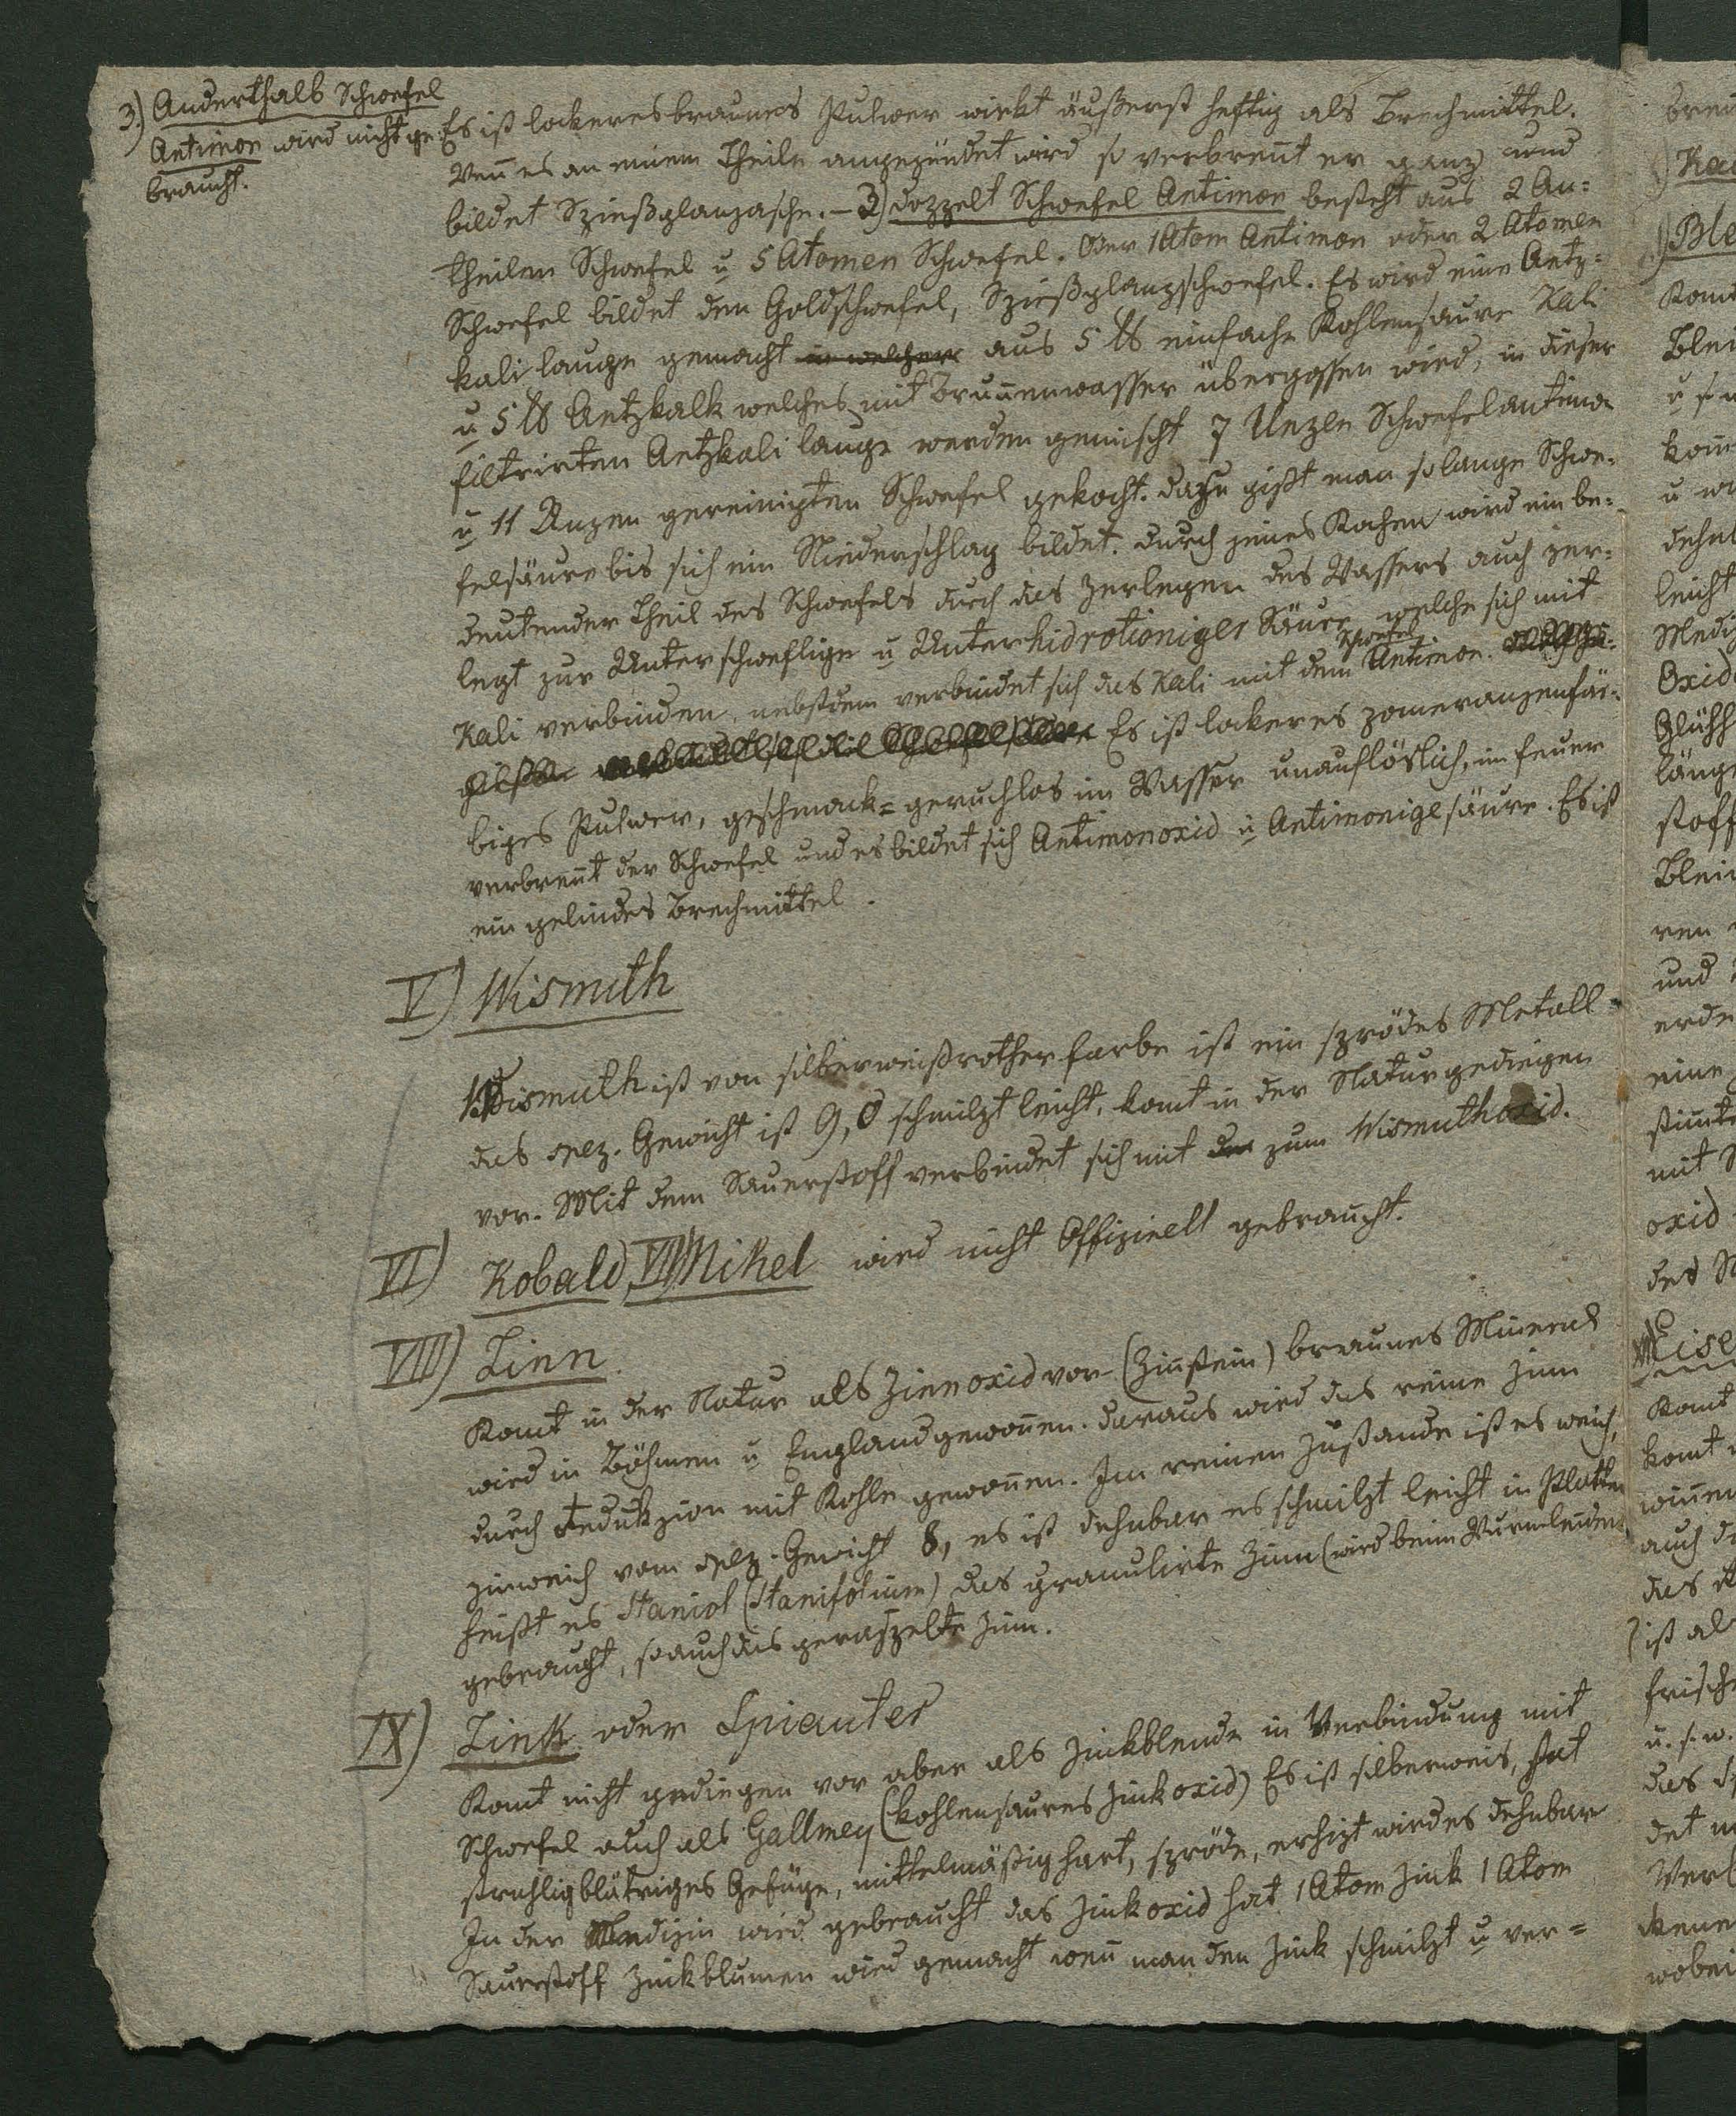 3.) Anderthalb Schwefel
Antimon wird nicht ge-
braucht.
Es ist lockeres braunes Pulver wirkt äußerst heftig als Brechmittel.
Wen̅ es an einem Theile angezündet wird so verbren̅t er ganz und
bildet Spießglanzasche. – 3) doppelt Schwefel Antimon besteht aus 2 An-
theilen Schwefel u 5 Atomen Schwefel. Oder 1 Atom Antimon oder 2 Atomen
Schwefel bildet den Goldschwefel, Spießglanzschwefel. Es wird eine Aetz-
kali lauge gemacht in welcher aus 5 ℔ einfache Kohlensaure Kali
u 5 ℔ Aetzkalk welches mit Brun̅enwasser übergossen wird, in dieser
filtrirten Aetzkali lauge werden gemischt 7 Unzen Schwefelantimon
u 11 Unzen gereinigten Schwefel gekocht. dazu gißt man solange Schwe-
felsäure bis sich ein Niederschlag bildet. durch jenes Kochen wird ein be-
deutender Theil des Schwefels durch das Zerlegen des Wassers auch zer-
legt zur Unterschweflige u Unterhidrotioniger Säure welche sich mit
Kali verbinden, nebstdem verbindet sich das Kali mit dem Schwefel Antimon.
Es ist lockeres pomeranzenfär-
biges Pulver, geschmack= geruchlos im Wasser unauflöslich, im Feuer
verbren̅t der Schwefel und es bildet sich Antimonoxid u Antimonigesäure. Es ist
ein gelindes Brechmittel.
V) Wismuth
Wismuth ist von silberweißrother Farbe ist ein sprödes Metall=
das spez. Gewicht ist 9,8 schmilzt leicht, kom̅t in der Natur gediegen
vor. Mit dem Sauerstoff verbindet sich mit der zum Wismuthoxid.
VI) Kobald, VII) Nikel wird nicht Offizinell gebraucht.
VIII) Zinn.
Kom̅t in der Natur als Zinnoxid vor (Zin̅stein) braunes Mineral
wird in Böhmen u England gewon̅en. daraus wird das reine Zinn
durch Redukzion mit Kohle gewon̅en. Im reinen Zustande ist es weich,
zinweich vom spez. Gewicht 8, es ist dehnbar es schmilzt leicht in Platten
heißt es Staniol (Stanifolium) das granulirte Zinn (wird beim Wurmleiden
gebraucht, so auch das geraspelte Zinn.
IX) Zink oder Spiauter
Kom̅t nicht gediegen vor aber als Zinkblende in Verbindung mit
Schwefel auch als Gallmey (kohlensaures Zinkoxid) Es ist silberweis, hat
strahlig blätriges Gefüge, mittelmäßig hart, spröde, erhizt wird es dehnbar
In der Medizin wird gebraucht das Zinkoxid hat 1 Atom Zink 1 Atom
Sauerstoff Zinkblumen wird gemacht wen̅ man den Zink schmilzt u ver=